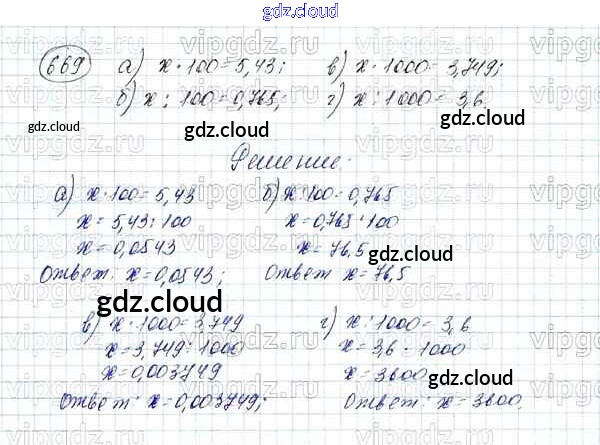 gdz.cloud
669 а) x · 100 = 5,43; в) x · 1000 = 3,749;
б) x : 100 = 0,765; г) x : 1000 = 3,6
gdz.cloud gdz.cloud gdz.cloud
Решение.
а) x · 100 = 5,43 б) x : 100 = 0,765
x = 5,43 : 100 x = 0,765 · 100
x = 0,0543 x = 76,5
gdz.cloud
Ответ: x = 0,0543; Ответ x = 76,5
gdz.cloud
в) x · 1000 = 3,749 г) x : 1000 = 3,6
x = 3,749 : 1000 x = 3,6 · 1000
x = 0,003749 x = 3600
gdz.cloud
Ответ: x = 0,003749; Ответ: x = 3600.